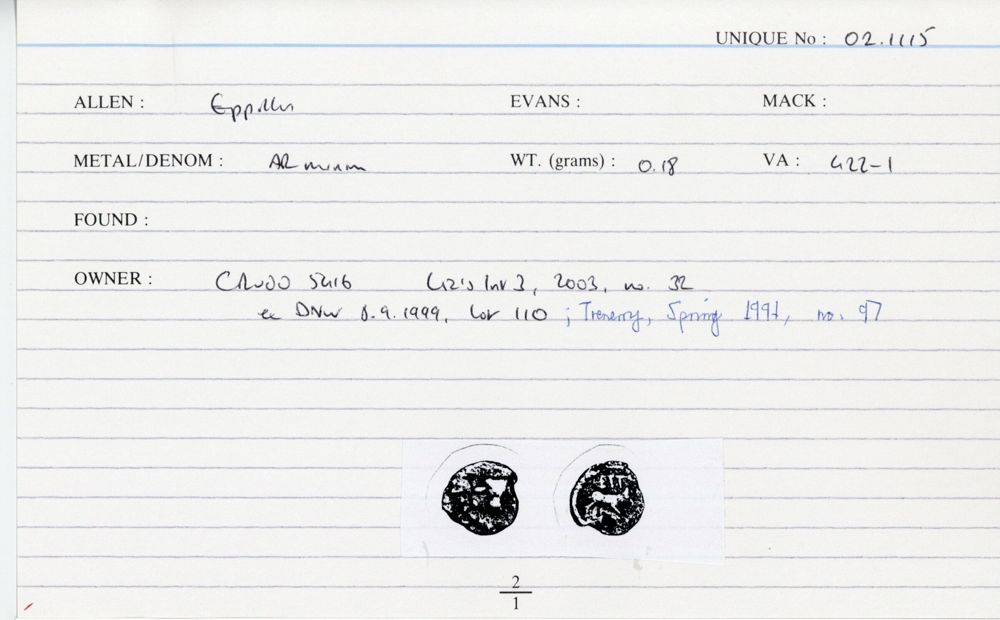 UNIQUE No : 02.1115
ALLEN : Eppillus EVANS : MACK :
METAL/DENOM : AR minim WT. (grams) : 0.18 VA : 422-1
FOUND :
OWNER : 2003, no. 32
ex DNW 8.9.1999, lot 110 ; Trenerry, Spring no. 97
2
1